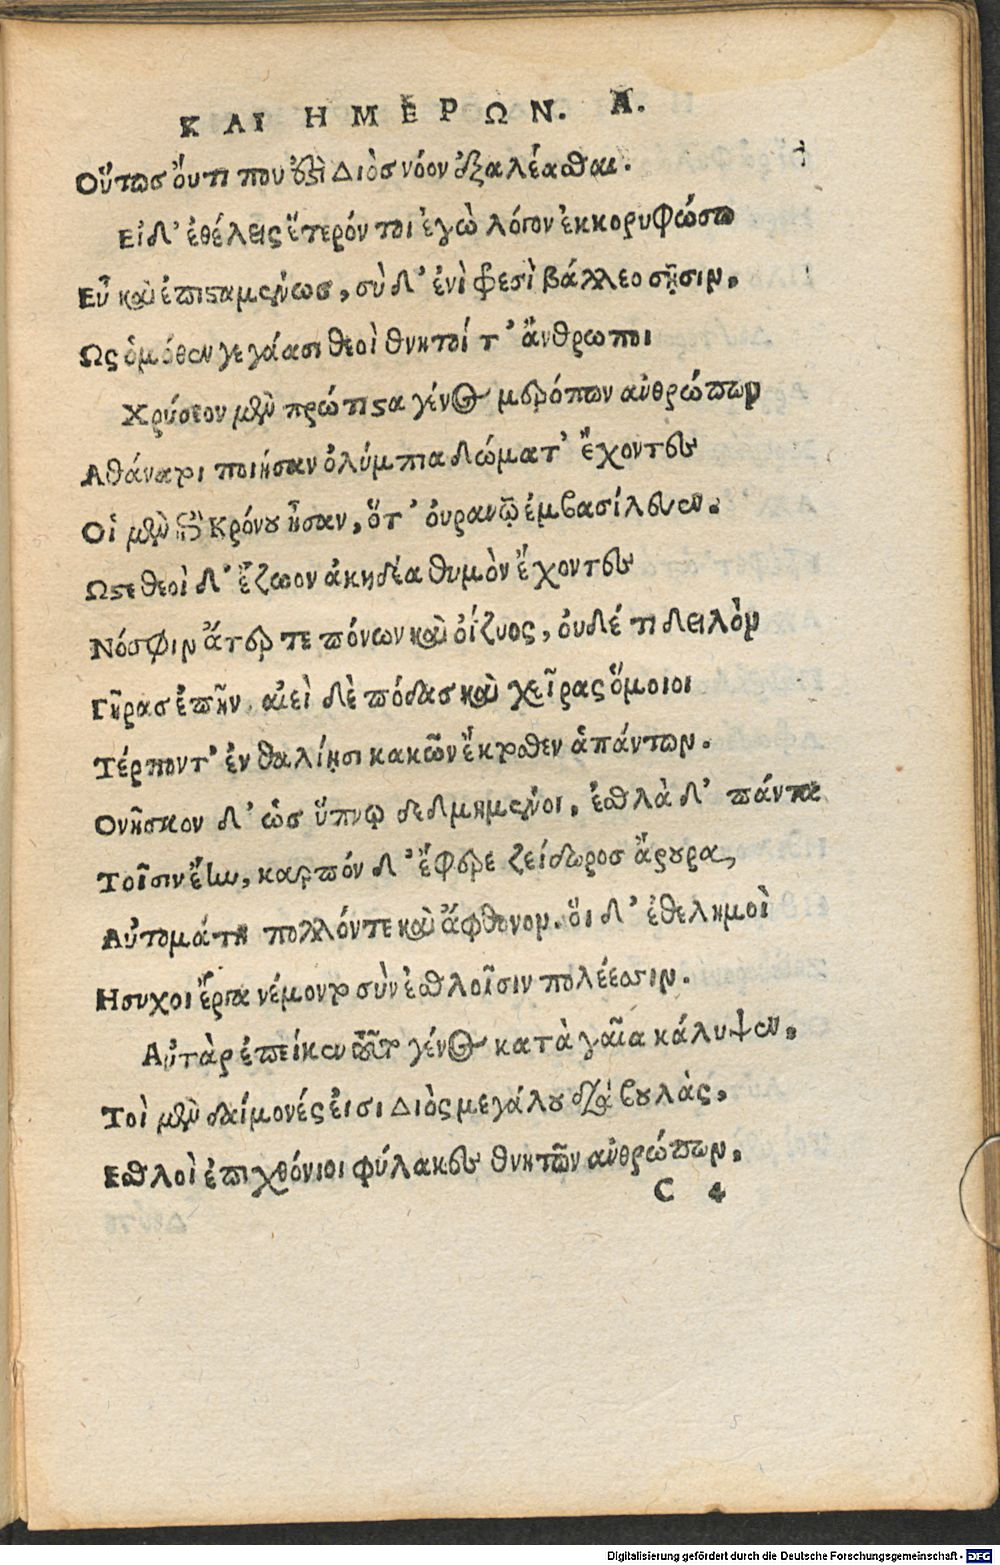 ΚΑΙ ΗΜΕΡΩΝ. Α.
Οὕτως οὔτι που ὅξι Διὸς νόον ἐξαλέασθαι.
Εἰ δ' ἐθέλεις ἕτερόν τοι ἐγὼ λόγον ἐκκορυφώσω
Εὖ καὶ ἐπισαμένως, σὺ δ' ἐνὶ φρεσὶ βάλλεο σῇσιν,
Ως ὁμόθεν γεγάασι θεοὶ θνητοί τ' ἄνθρωποι
Χρύσεον μὲν πρώτιστα γένος μερόπων ἀνθρώπων
Αθάνατοι ποιήσαν ὀλύμπια δώματ' ἔχοντες
Οἱ μὲν ἐπὶ Κρόνου ἦσαν, ὅτ' οὐρανῷ ἐμβασίλευεν.
Ωστε θεοὶ δ' ἔζωον ἀκηδέα θυμὸν ἔχοντες
Νόσφιν ἄτερ τε πόνων καὶ ὀίζυος, ουδέ τι δειλὸν
Γῆρας ἐπῆν, αἰεὶ δὲ πόδας καὶ χεῖρας ὅμοιοι
Τέρποντ' ἐν θαλίῃσι κακῶν ἔκτοθεν ἁπάντων.
Θνῆσκον δ' ὡς ὕπνῳ δεδμημένοι, ἐσθλὰ δ' πάντα
Τοῖσιν ἔην, καρπόν δ' ἔφερε ζείδωρος ἄρουρα,
Αὐτομάτη πολλόν τε καὶ ἄφθονον. ὅι δ' ἐθελημοὶ
Ησυχοι ἔργα νέμοντο σὺν ἐσθλοῖσιν πολέεσσιν.
Αὐτὰρ ἐπείκεν τοῦτο γένος κατὰ γαῖα κάλυψεν,
Τοὶ μὲν δαίμονές ἐισι Διὸς μεγάλου διὰ βουλὰς,
Εσθλοὶ ἐπιχθόνιοι φύλακες θνητῶν ἀνθρώπων,
C 4